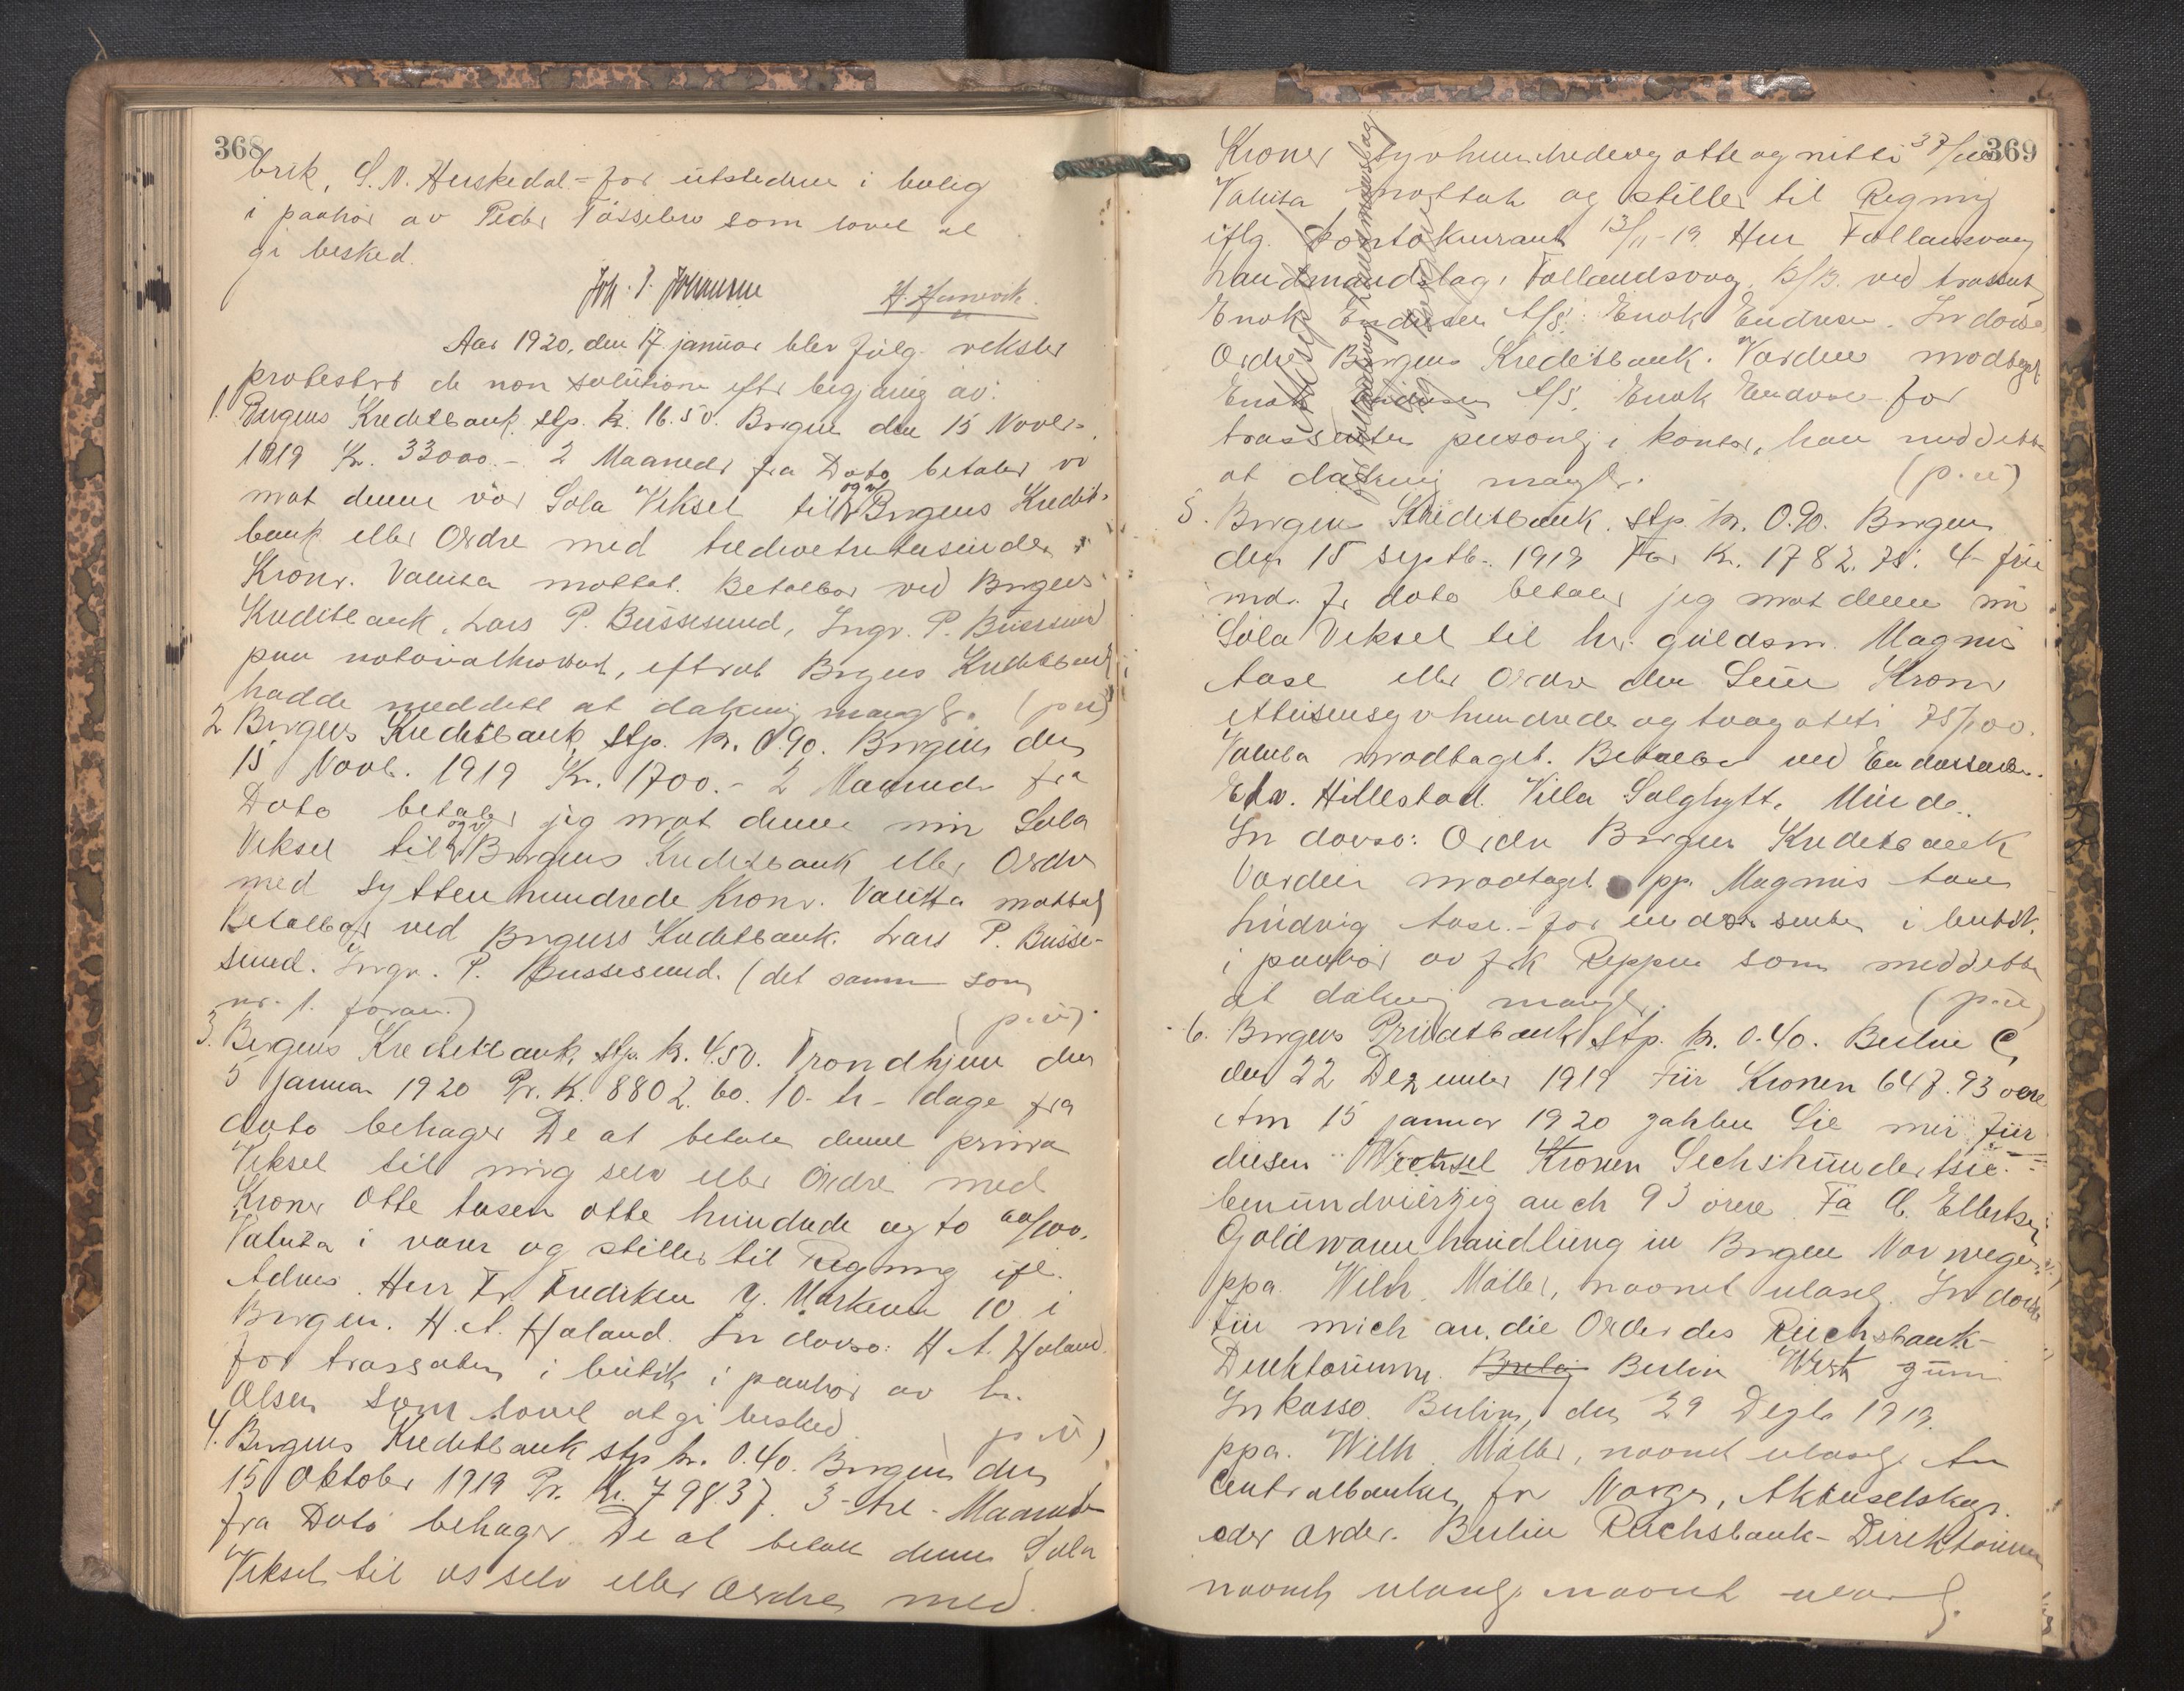 368
brik, S. N. Herskedal - for utstederen i bolig
i paahør av Peder Tösseben som lovet at
gi besked.
Joh. P. Johansen
Aar 1920, den 17. januar blev følg. veksler
protestert de non solutione efter begjæring av:
1. Bergens Kreditbank, stp. kr. 16.50. Bergen den 15 Novbr.
1919 Kr. 33000.- 2 Maaneder fra Dato betaler vi
mot denne vor Sola Veksel til Bergens Kredit-
bank eller Ordre med tredvetretusinde
Kroner. Valuta mottat. Betalbar ved Bergens
Kreditbank, Lars P. Bussesund, Ingv. P. Bussesund
paa notarialkontoret, efterat Bergens Kreditbank
hadde meddelt at dækning mangler. (p.u)
2 Bergens Kreditbank, stp. kr. 0.90. Bergen den
15 Novb. 1919 Kr. 1700.- 2 Maaneder fra
Dato betaler jeg mot denne min Sola
Veksel til Bergens Kreditbank eller Ordre
med Syttenhundrede Kroner. Valuta mottat
Betalbar ved Bergens Kreditbank. Lars P. Busse-
sund. Ingv. P. Bussesund. (det samme som
nr. 1. foran.) (p.u).
3. Bergens Kreditbank, stp. kr. 4.50. Trondhjem den
5 januar 1920 Pr. K. 8802.60. 10- ti - dage fra
dato behager De at betale denne prima
Veksel til mig selv eller Ordre med
Kroner Otte tusen otte hundrede og to 60/100.
Valuta i varer og stilles til Regning ifl.
Advis. Herr Fr. Fredriksen Y. Markevei 10 i
Bergen. H. A. Haland. In dorso: H. A. Haland.
for trassaten i butik i paahør av hr.
Olsen som lovet at gi besked. (p.u)
4. Bergens Kreditbank stp kr. 0.40. Bergen den
15 Oktober 1919 Pr. Kr. 798.37. 3- tre - Maaneder
fra Dato behager De at betale denne Sola
Veksel til os selv eller Ordre med
369
Kroner syvhundredeog otteognitti 37/100
Valuta mottat og stilles til Regning
iflg. Kontokurant 13/11-19. Herr Follandsvaag
handmandslag, Follandsvaag. B/B. ved trassent
Enok Endresen A/S. Enok Endresen. In dorso
Ordre Bergens Kreditbank. Værdien modtaget
Enok Endresen A/S. Enok Endresen for
trassenten personlig i kontor, han meddelte
at dækning mangler. (p.u)
5. Bergens Kreditbank. stp. kr. 0.90. Bergen
den 15 septb. 1919 For Kr. 1782.75. 4- fire
md. fr dato betaler jeg mot denne min
Sola Veksel til hr. guldsm. Magnus
Aase eller Ordre den Sum Kroner
Attensyvhundrede og toogotti 75/100.
Valuta modtaget. Betalbar ved Endossenten.
Edv. Hillestad. Villa Solghytt. Minde.
In dorso: Ordre Bergens Kreditbank
Værdien modtaget pp. Magnus Aase
Ludvig Aase. - for endossenten i butik.
i paahør av frk Reppen som meddelte
at dækning mangler. (p.u)
6. Bergens Privatbank stp. kr. 0.40. Berlin C,
den 22 Dezember 1919 Für Kronen 647.93 oere
Am 15 januar 1920 zahlen Sie mir für
diesen Wechsel Kronen Sechshundertsie-
benundvierzig auch 93 oere. Fa A. Ellertsen
Goldwarenhandlung in Bergen Norwegen.
ppa. Wilh. Müller, navnet ulæselig. In dorso
Für mich an die Order des Reichsbank-
Direktoriums. Berlin Wert zum
Inkasso. Berlin, den 29 Dezb 1919.
ppa. Wilh. Müller, navnet ulæselig. An
Centralbanken for Norge, Aktieselskap.
oder Order. Berlin Reichsbank-Direktorium
navnet ulæselig navnet ulæselig.